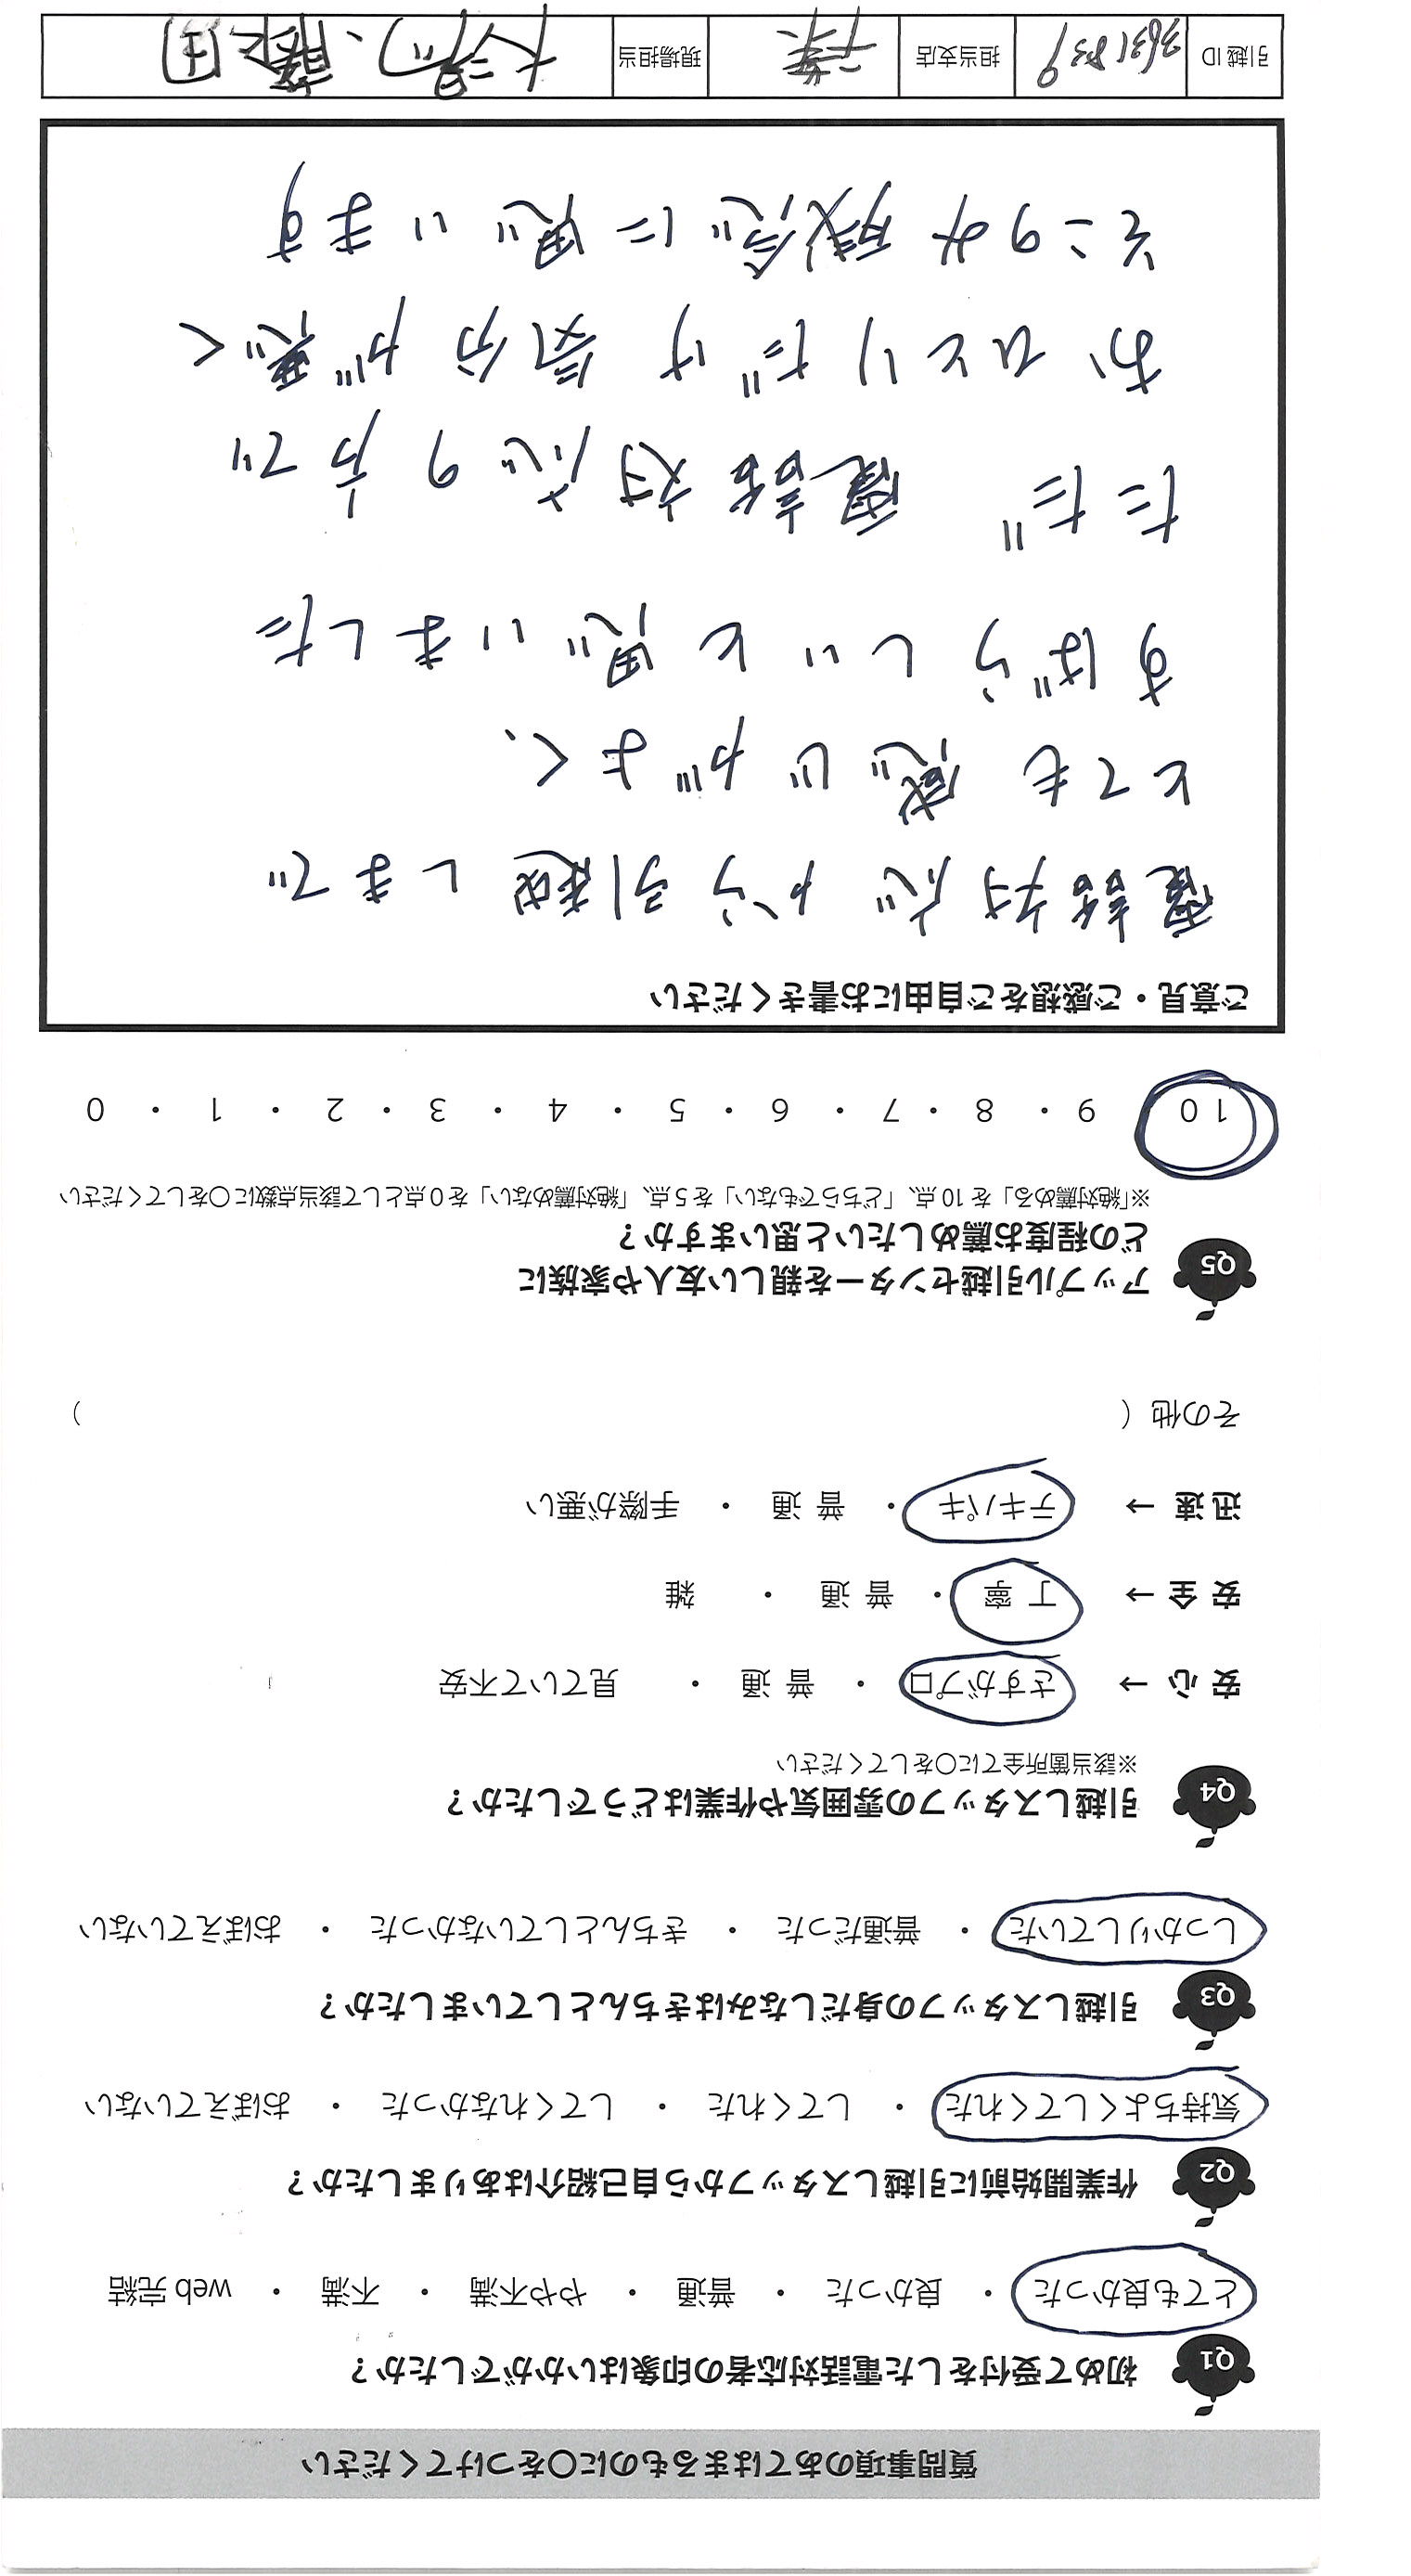 質問事項のあてはまるものに〇をつけてください
Q1 初めて受付をした電話対応者の印象はいかがでしたか？
とても良かった ・ 良かった ・ 普通 ・ やや不満 ・ 不満 ・ web 完結
Q2 作業開始前に引越しスタッフから自己紹介はありましたか？
気持ちよくしてくれた ・ してくれた ・ してくれなかった ・ おぼえていない
Q3 引越しスタッフの身だしなみはきちんとしていましたか？
しっかりしていた ・ 普通だった ・ きちんとしていなかった ・ おぼえていない
Q4 引越しスタッフの雰囲気や作業はどうでしたか？
※該当箇所全てに〇をしてください
安 心 → さすがプロ ・ 普 通 ・ 見ていて不安
安 全 → 丁 寧 ・ 普 通 ・ 雑
迅 速 → テキパキ ・ 普 通 ・ 手際が悪い
その他（ ）
Q5 アップル引越センターを親しい友人や家族に
どの程度お薦めしたいと思いますか？
※「絶対薦める」を 10 点、「どちらでもない」を 5 点、「絶対薦めない」を 0 点として該当点数に〇をしてください
10 9 ・ 8 ・ 7 ・ 6 ・ 5 ・ 4 ・ 3 ・ 2 ・ 1 ・ 0
ご意見・ご感想をご自由にお書きください
電話対応から引越しまで
とても感じがよく、
すばらしいと思いました
ただ 電話対応の方で
おひとりだけ気分が悪く
そこのみ残念に思います
引越 ID 担当支店 千葉 現場担当